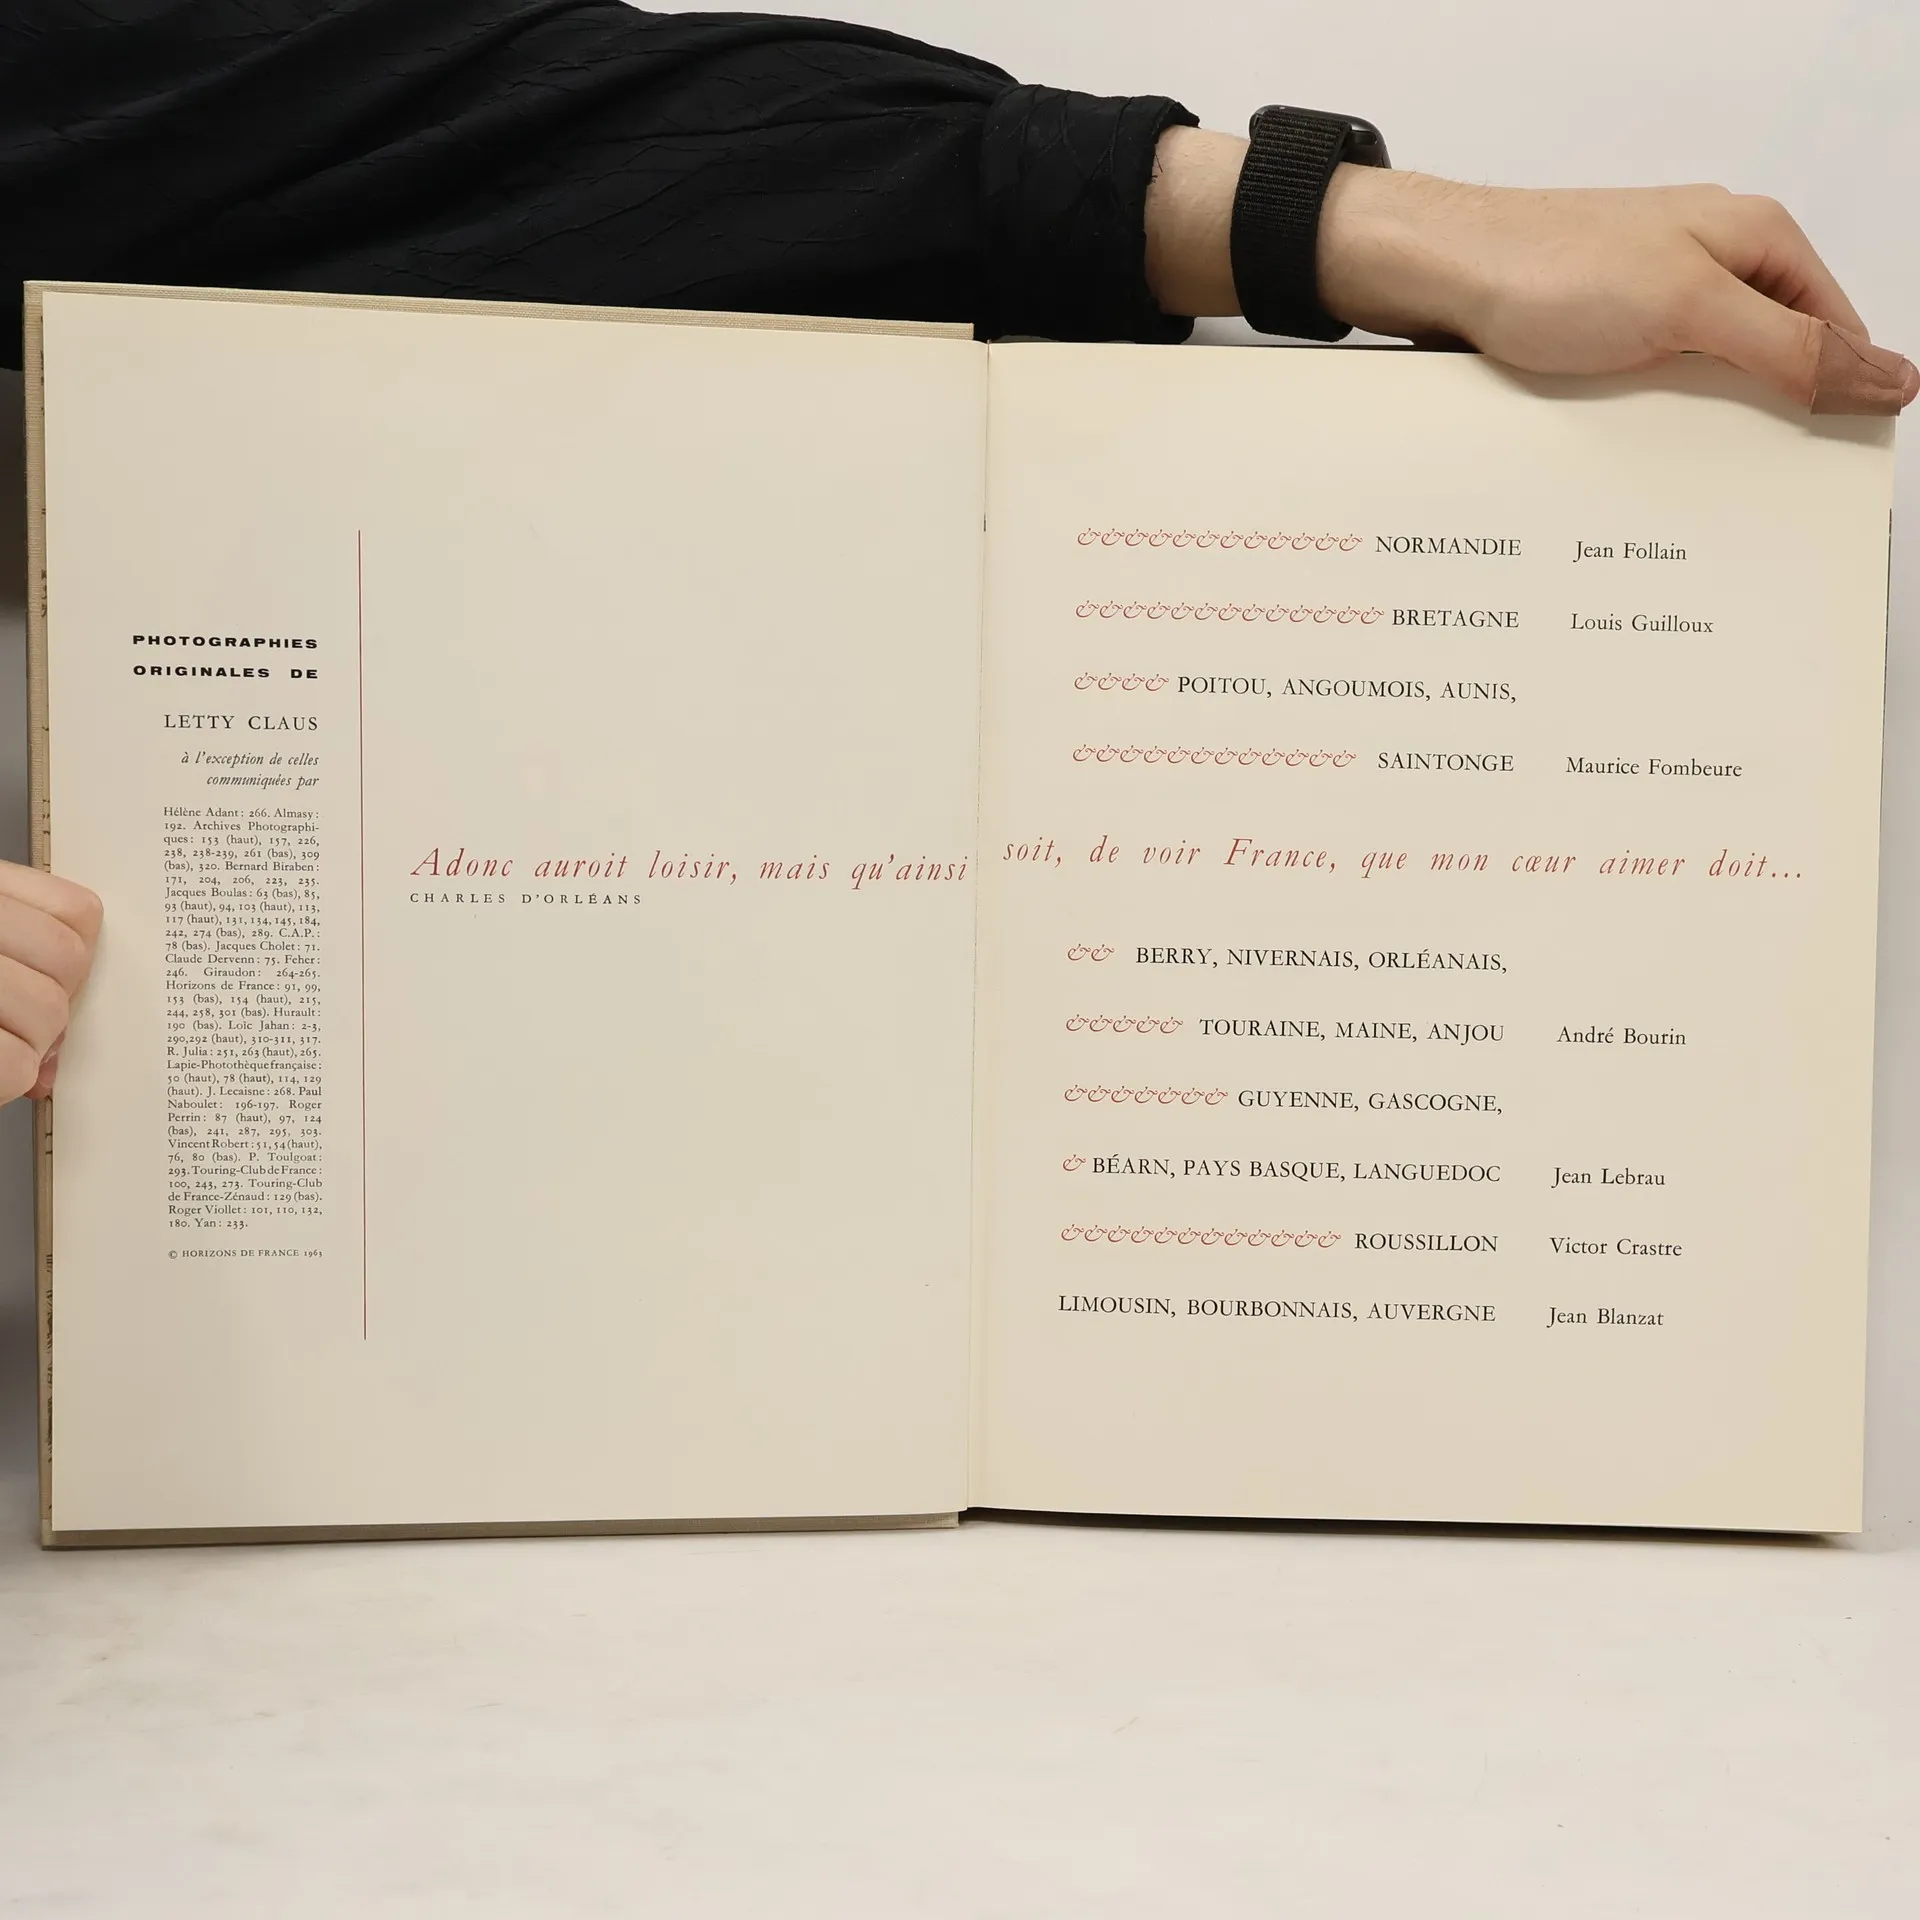 PHOTOGRAPHIES
ORIGINALES DE
LETTY CLAUS
à l'exception de celles
communiquées par
Hélène Adant : 266. Almasy :
192. Archives Photographi-
ques : 153 (haut), 157, 226,
238, 238-239, 261 (bas), 309
(bas), 320. Bernard Biraben :
171, 204, 206, 223, 235.
Jacques Boulas : 63 (bas), 85,
93 (haut), 94, 103 (haut), 113,
117 (haut), 131, 134, 145, 184,
242, 274 (bas), 289. C.A.P. :
78 (bas). Jacques Cholet : 71.
Claude Dervenn : 75. Feher :
246. Giraudon : 264-265.
Horizons de France : 91, 99,
153 (bas), 154 (haut), 215,
244, 258, 301 (bas). Hurault :
190 (bas). Loïc Jahan : 2-3,
290, 292 (haut), 310-311, 317.
R. Julia : 251, 263 (haut), 265.
Lapie-Photothèque française :
50 (haut), 78 (haut), 114, 129
(haut). J. Lecaisne : 268. Paul
Naboulet : 196-197. Roger
Perrin : 87 (haut), 97, 124
(bas), 241, 287, 295, 303.
Vincent Robert : 51, 54 (haut),
76, 80 (bas). P. Toulgoat :
293. Touring-Club de France :
100, 243, 273. Touring-Club
de France-Zénaud : 129 (bas).
Roger Viollet : 101, 110, 132,
180. Yan : 233.
© HORIZONS DE FRANCE 1963
Adonc auroit loisir, mais qu'ainsi soit, de voir France, que mon cœur aimer doit...
CHARLES D'ORLÉANS
&&&&&&&&&&&& NORMANDIE Jean Follain
&&&&&&&&&&&&& BRETAGNE Louis Guilloux
&&&& POITOU, ANGOUMOIS, AUNIS,
&&&&&&&&&&&& SAINTONGE Maurice Fombeure
&& BERRY, NIVERNAIS, ORLÉANAIS,
&&&&& TOURAINE, MAINE, ANJOU André Bourin
&&&&&&& GUYENNE, GASCOGNE,
& BÉARN, PAYS BASQUE, LANGUEDOC Jean Lebrau
&&&&&&&&&&&& ROUSSILLON Victor Crastre
LIMOUSIN, BOURBONNAIS, AUVERGNE Jean Blanzat